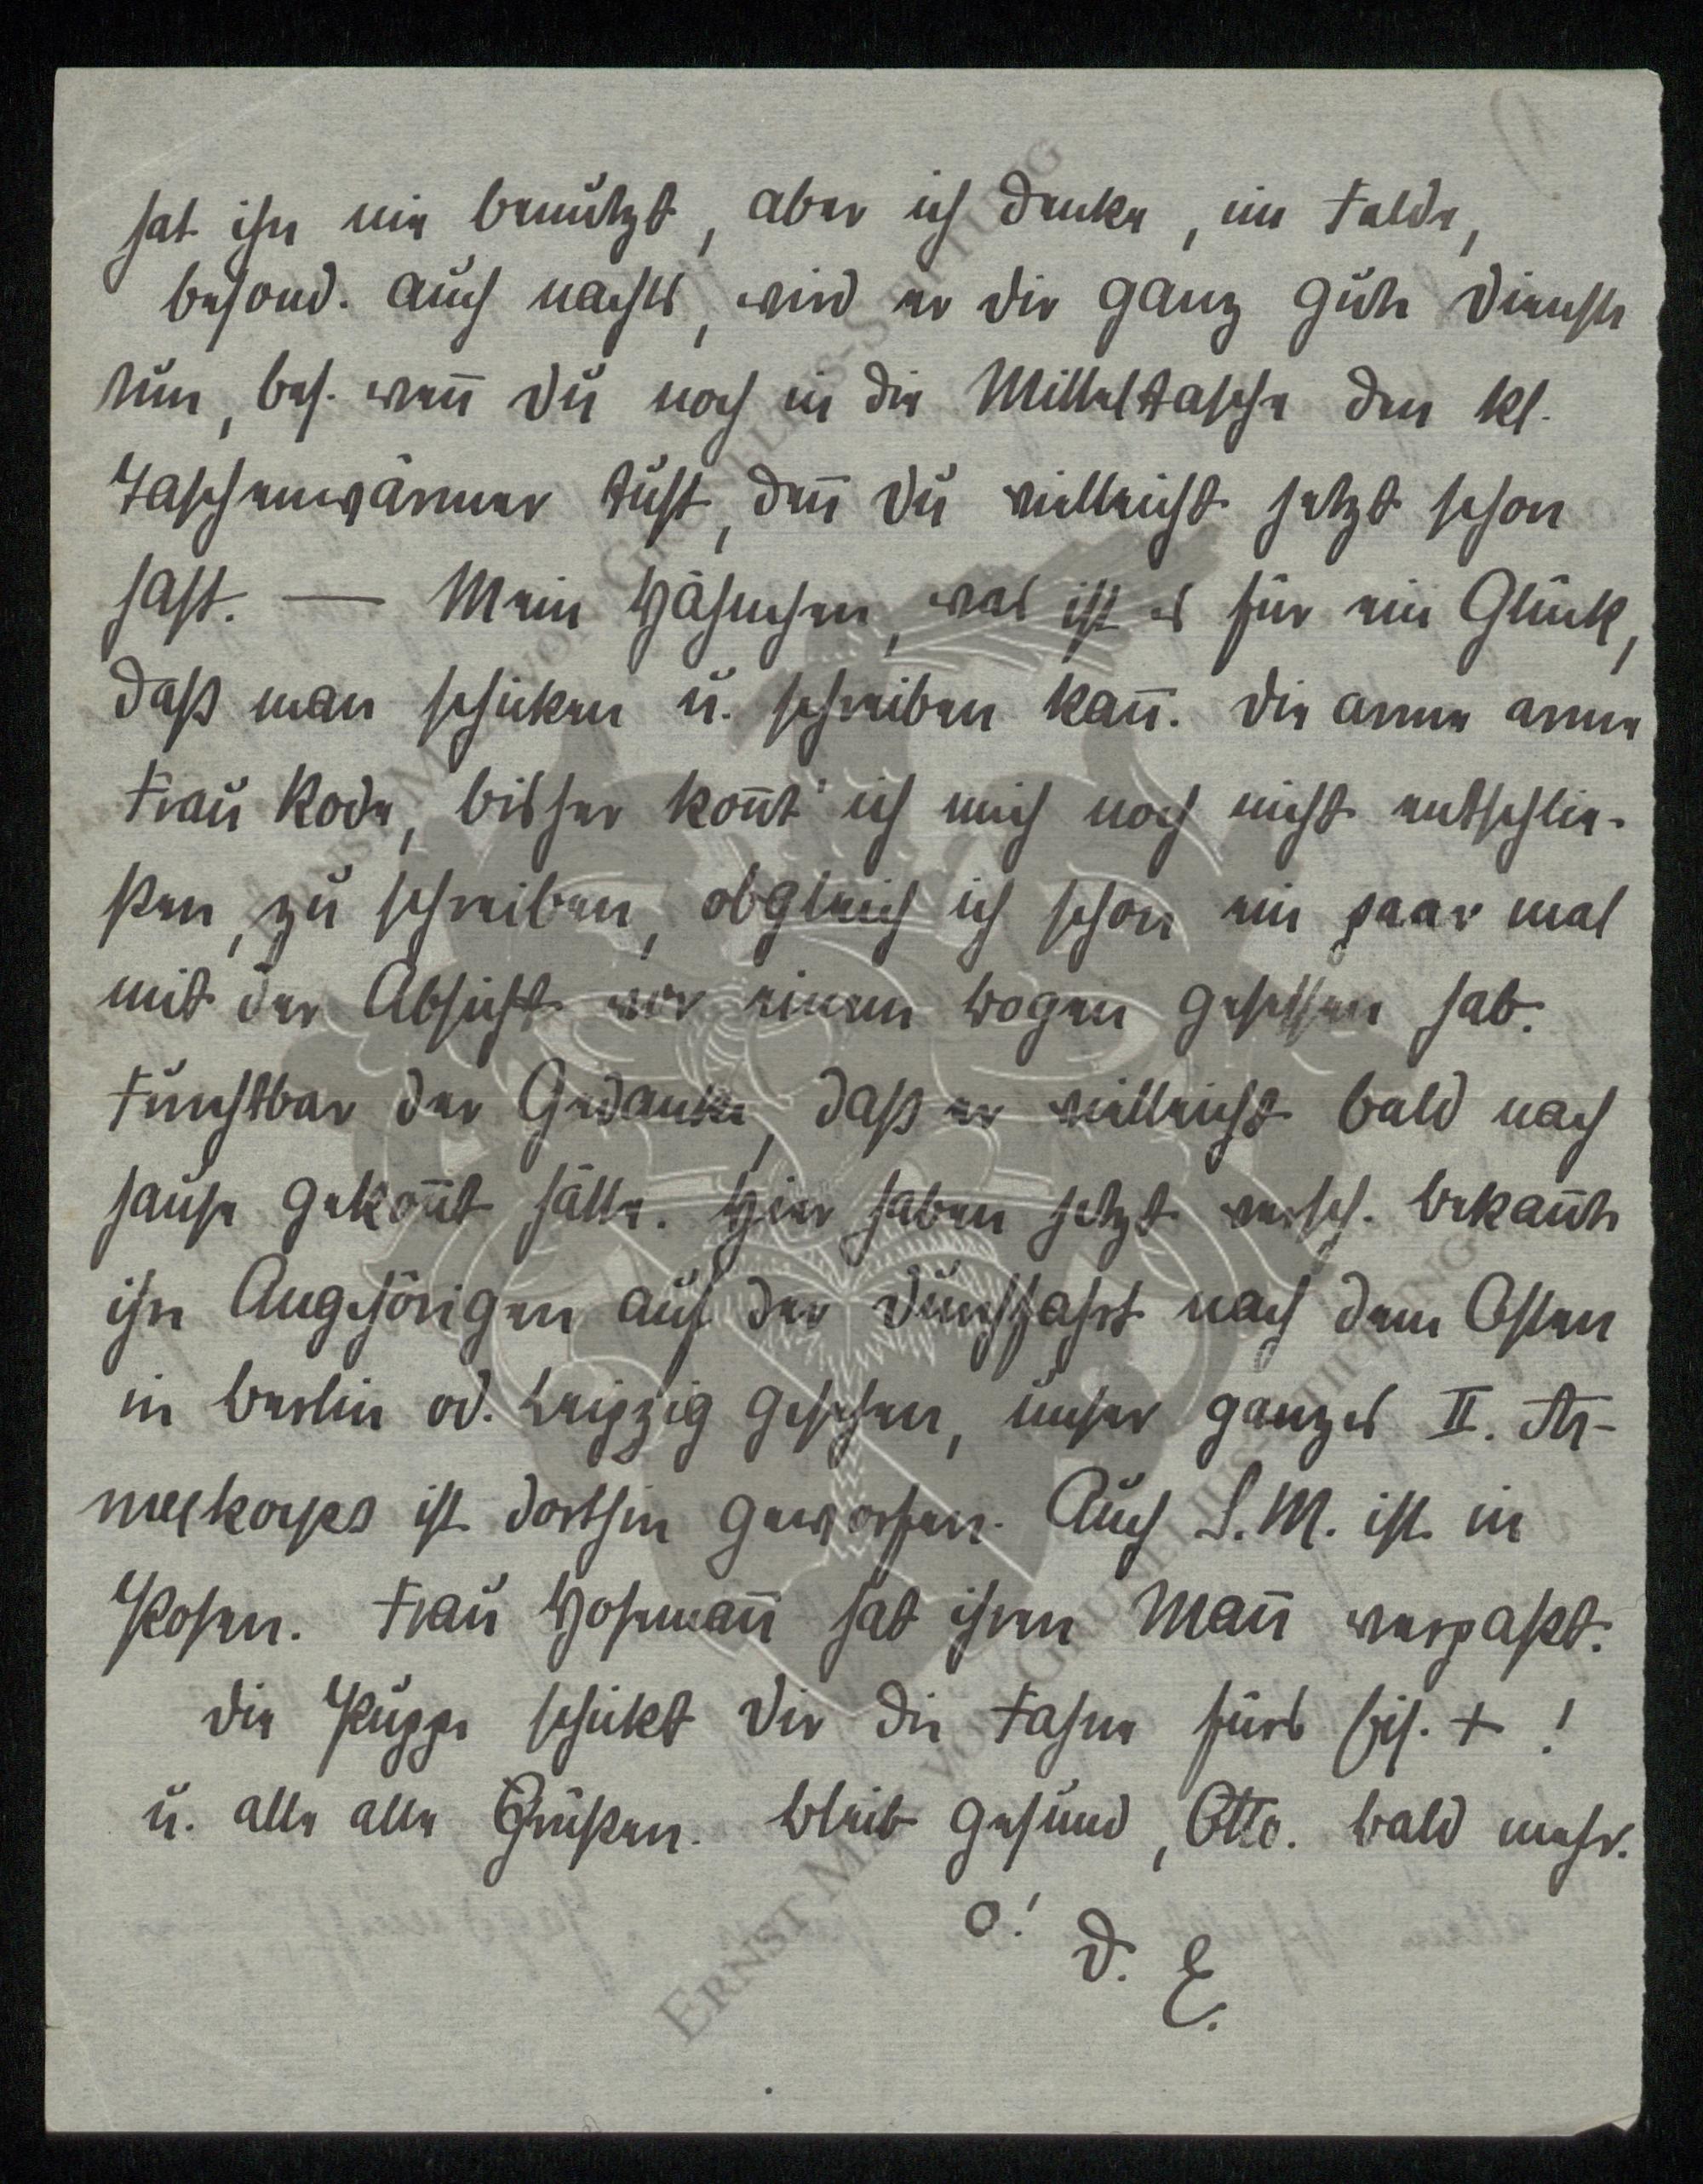 hat ihn nie benützt, aber ich denke, im Felde,
besond. auch nachts, wird er dir ganz gute Dienste
tun, bes. wen̄ du noch in die Mitteltasche den kl.
Taschenwärmer tust, den du vielleicht jetzt schon
hast. — Mein Häschen, was ist es für ein Glück,
daß man schicken u. schreiben kan̄. Die arme arme
Frau Rode, bisher kon̄t' ich mich noch nicht entschlie-
ßen, zu schreiben, obgleich ich schon ein paar mal
mit der Absicht vor einem Bogen gesessen hab.
Furchtbar der Gedanke, daß er vielleicht bald nach
hause gekon̄t hätte. Hier haben jetzt versch. bekan̄te
ihre Angehörigen auf der Durchfahrt nach dem Osten
in Berlin od. Leipzig gesehen, unser ganzes II. Ar-
meekorps ist dorthin geworfen. Auch S. M. ist in
Posen. Frau Hofman̄ hat ihren Man̄ verpaßt.
Die Puppe schickt Dir die Fahne fürs Eis. + !
u. alle alle Grüßen. Bleib gesund, Otto. Bald mehr.
O! D. E.
ERNST MAX VON GRUNELIUS-STIFTUNG
ERNST MAX VON GRUNELIUS-STIFTUNG